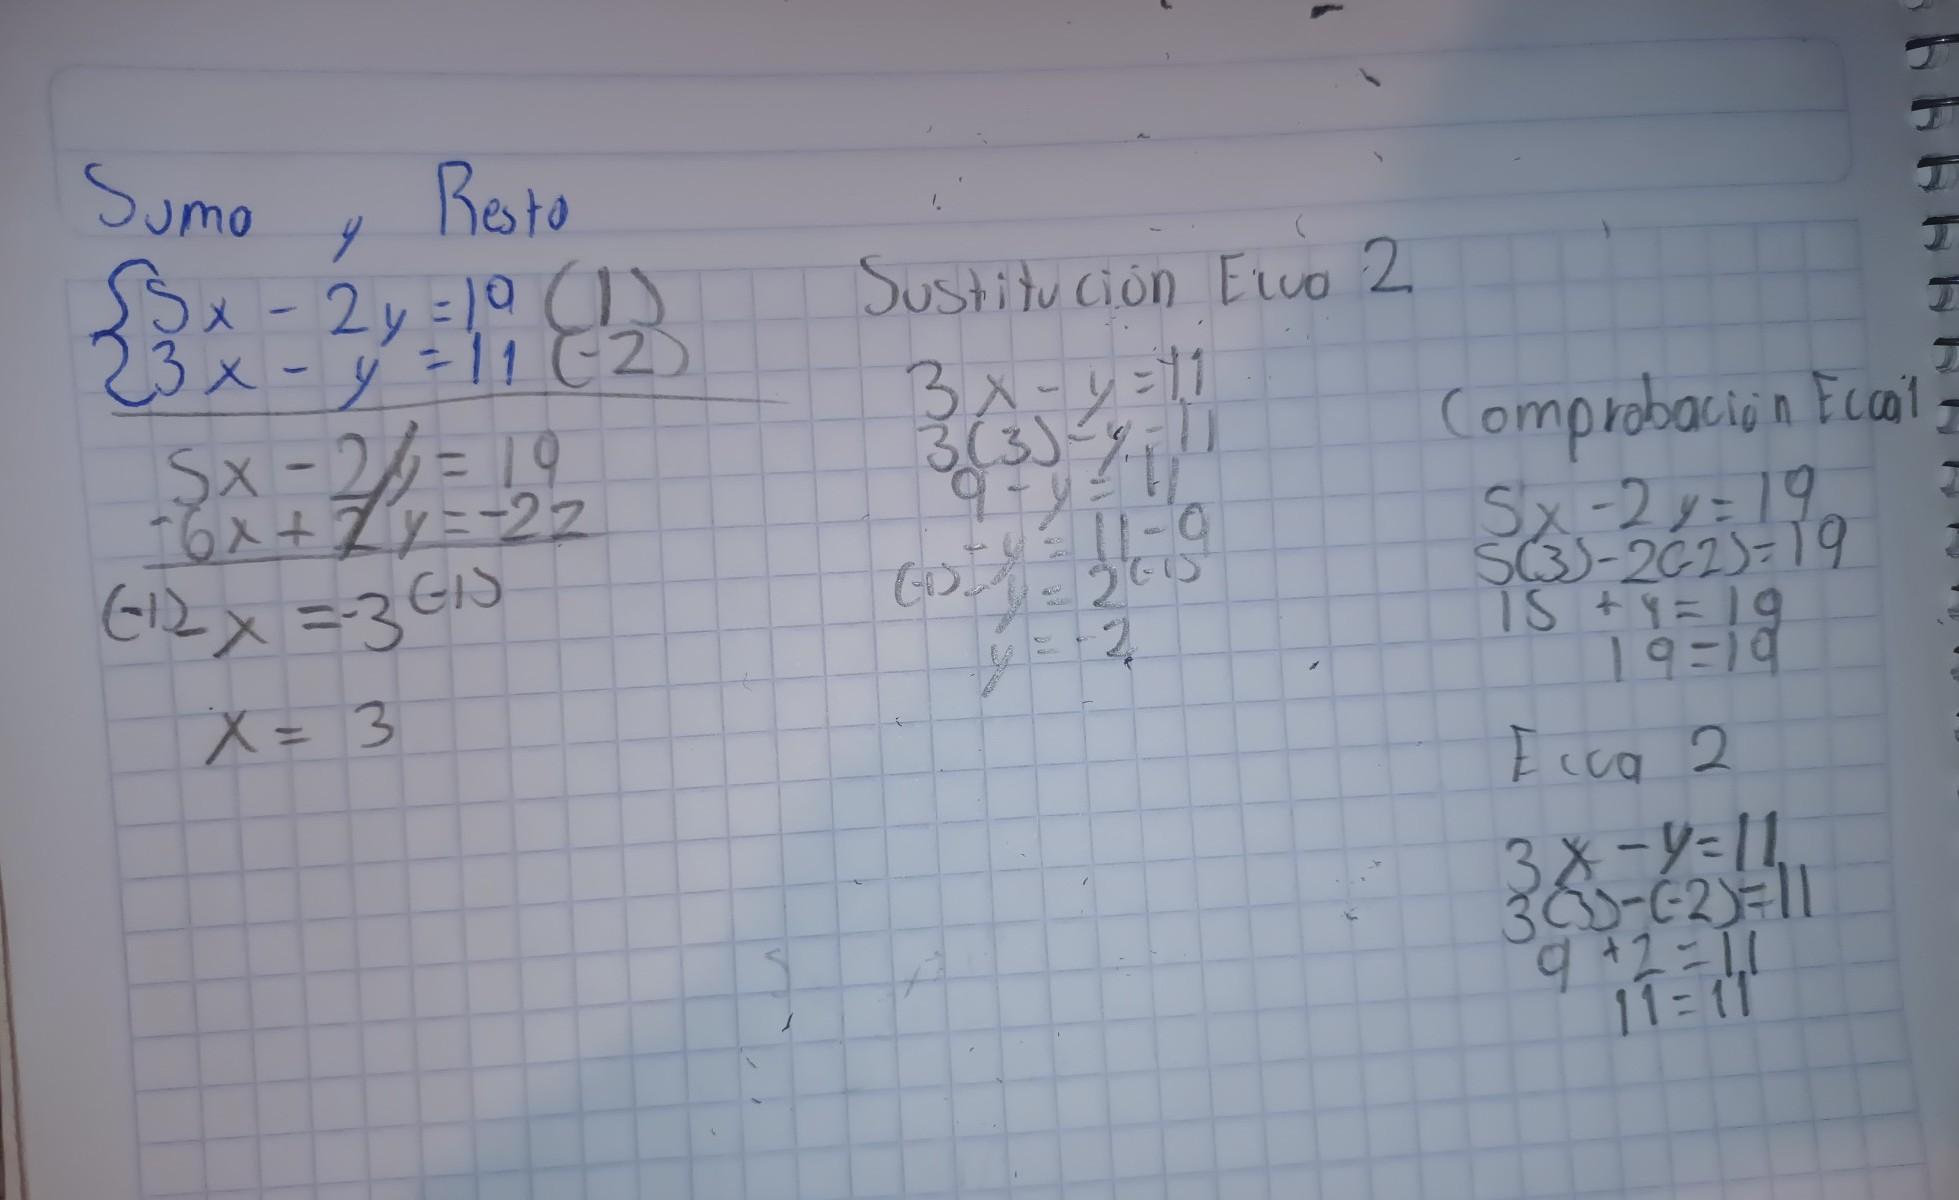 Suma y Resta
5x - 2y = 19 (1)
3x - y = 11 (-2)
5x - 2y = 19
-6x + 2y = -22
(-1) - x = -3 (-1)
x = 3
Sustitución Ecua 2
3x - y = 11
3(3) - y = 11
9 - y = 11
- y = 11 - 9
(-1) - y = 2 (-1)
y = -2
Comprobación Ecua 1
5x - 2y = 19
5(3) - 2(-2) = 19
15 + 4 = 19
19 = 19
Ecua 2
3x - y = 11
3(3) - (-2) = 11
9 + 2 = 11
11 = 11